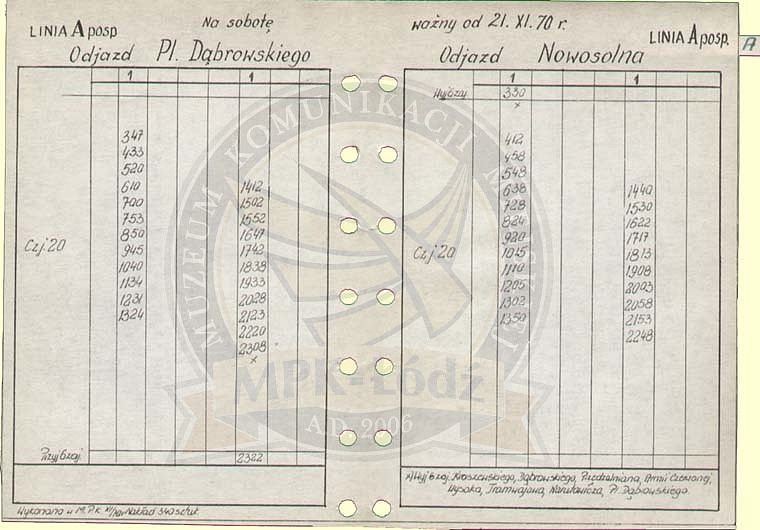 LINIA A posp
Na sobotę
Odjazd Pl. Dąbrowskiego
1 1
347
433
520
610 1412
700 1502
753 1552
850 1647
Czj 20
945 1742
1040 1838
1134 1933
1231 2028
1324 2123
2220
2308
x
Przyj. 2322
Wykonano w M.P.K. Nakład
ważny od 21. XI. 70 r.
LINIA A posp.
A
Odjazd Nowosolna
1 1
330
x
412
458
548
638 1440
728 1530
824 1622
920 1717
Czj 20
1015 1813
1110 1908
1205 2003
1302 2058
1350 2153
2248
x) Wyj. Kraszewskiego, Dąbrowskiego, Przędzalniana, Armii Czerwonej,
Wysoka, Tramwajowa, Narutowicza, Pl. Dąbrowskiego.
MUZEUM KOMUNIKACJI MIEJSKIEJ
MPK-Łódź
A.D. 2006